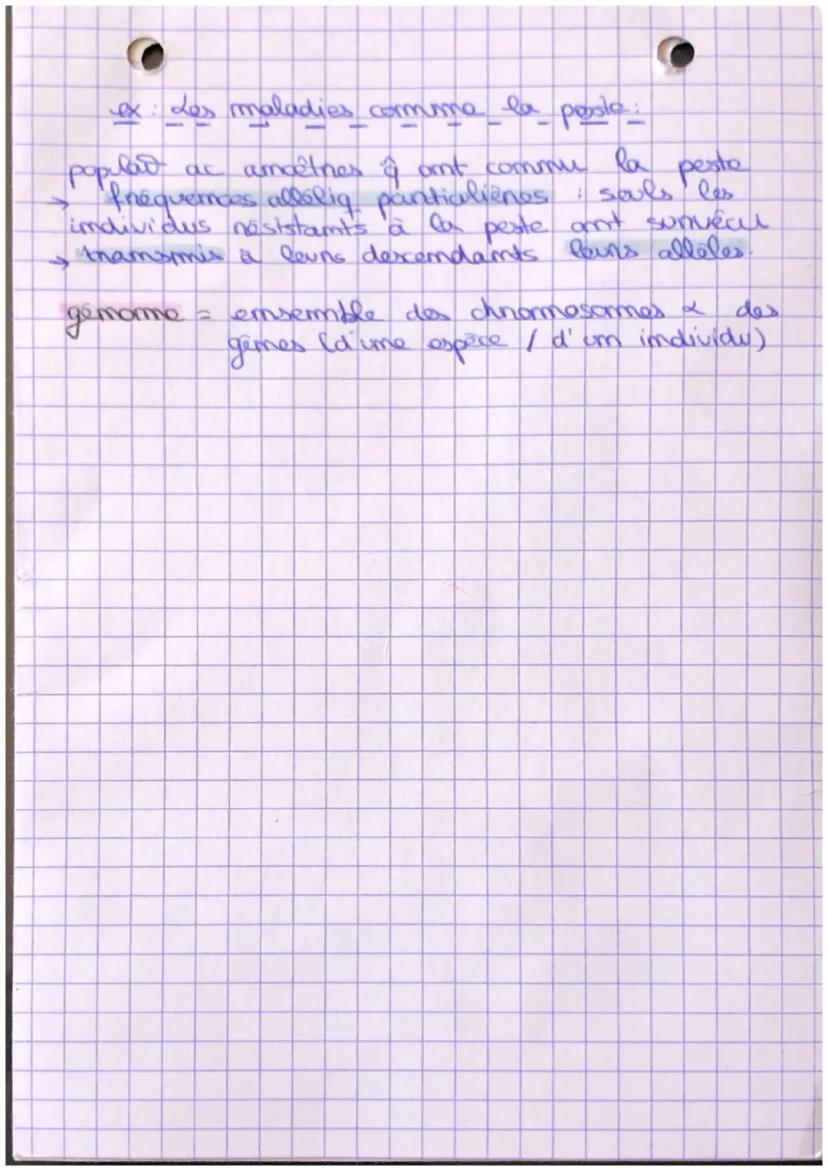 ex : Les maladies comme la peste :
populat° ac ancêtres q̂ ont connu la peste
→ fréquences alléliq particulières : seuls les
individus résistants à la peste ont survécu
→ transmis à leurs descendants leurs allèles.
génome = ensemble des chromosomes & des
gènes (d'une espèce / d'un individu)